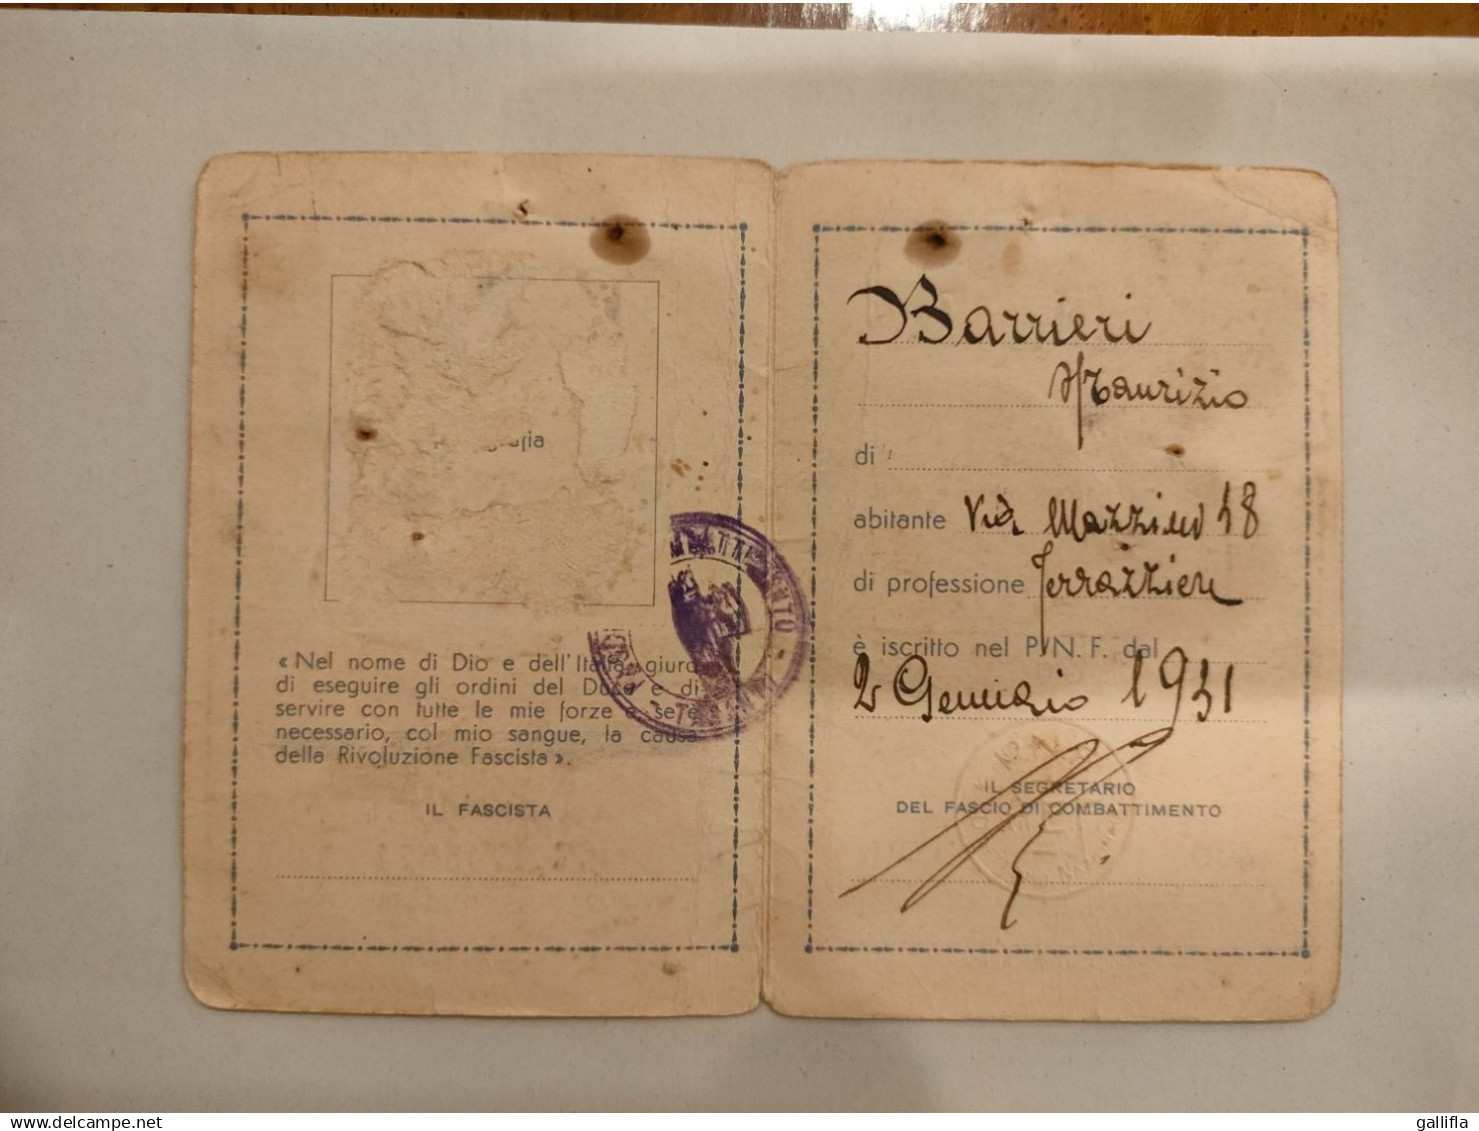 « Nel nome di Dio e dell'Italia giuro
di eseguire gli ordini del Duce e di
servire con tutte le mie forze e, se è
necessario, col mio sangue, la causa
della Rivoluzione Fascista ».
IL FASCISTA
Barrieri
Maurizio
di
abitante Via Mazzini 18
di professione Terrazziere
è iscritto nel P. N. F. dal
2 Gennaio 1931
IL SEGRETARIO
DEL FASCIO DI COMBATTIMENTO
delcampe.net
gallifla